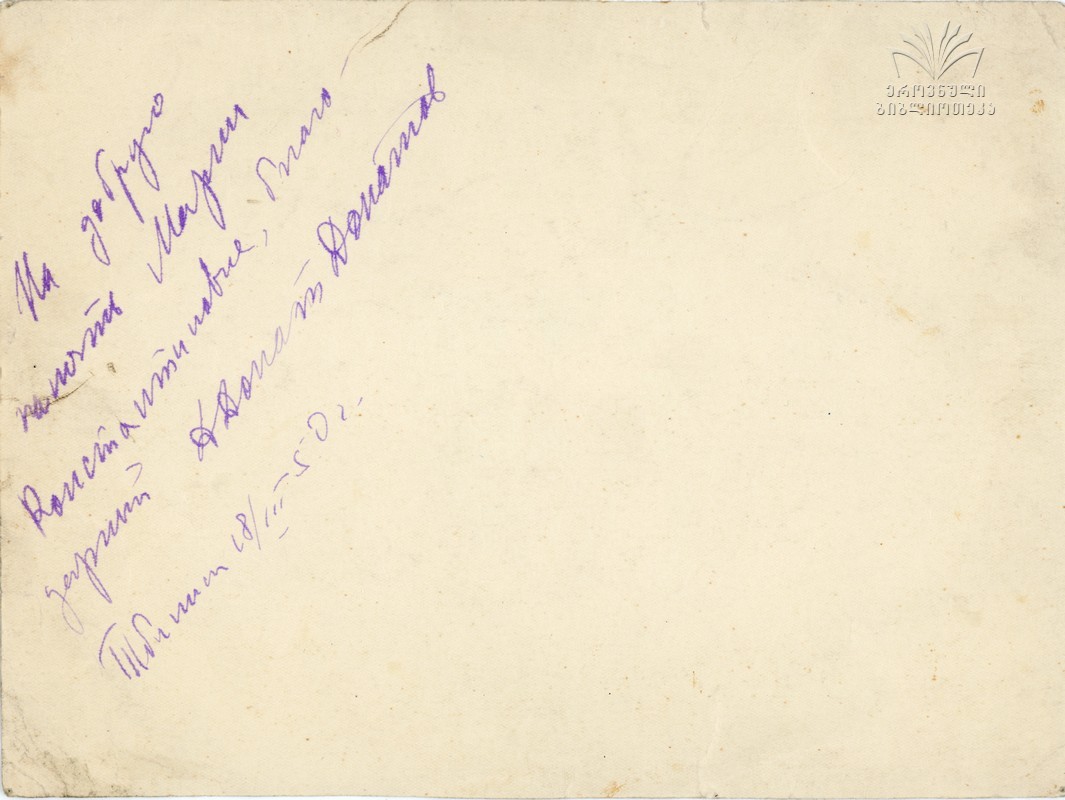 На добрую
память Марии
Константиновне, благо-
дарный Донат Донатов
Тбилиси 18/III-50 г.
ეროვნული
ბიბლიოთეკა